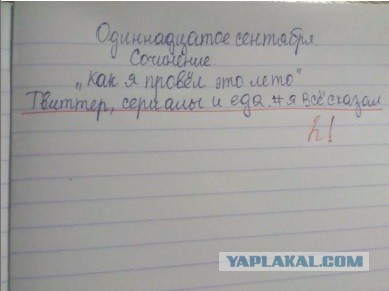 Одиннадцатое сентября.
Сочинение
„Как я провёл это лето"
Твиттер, сериалы и еда. #я всё сказал
2!
YAPLAKAL.COM